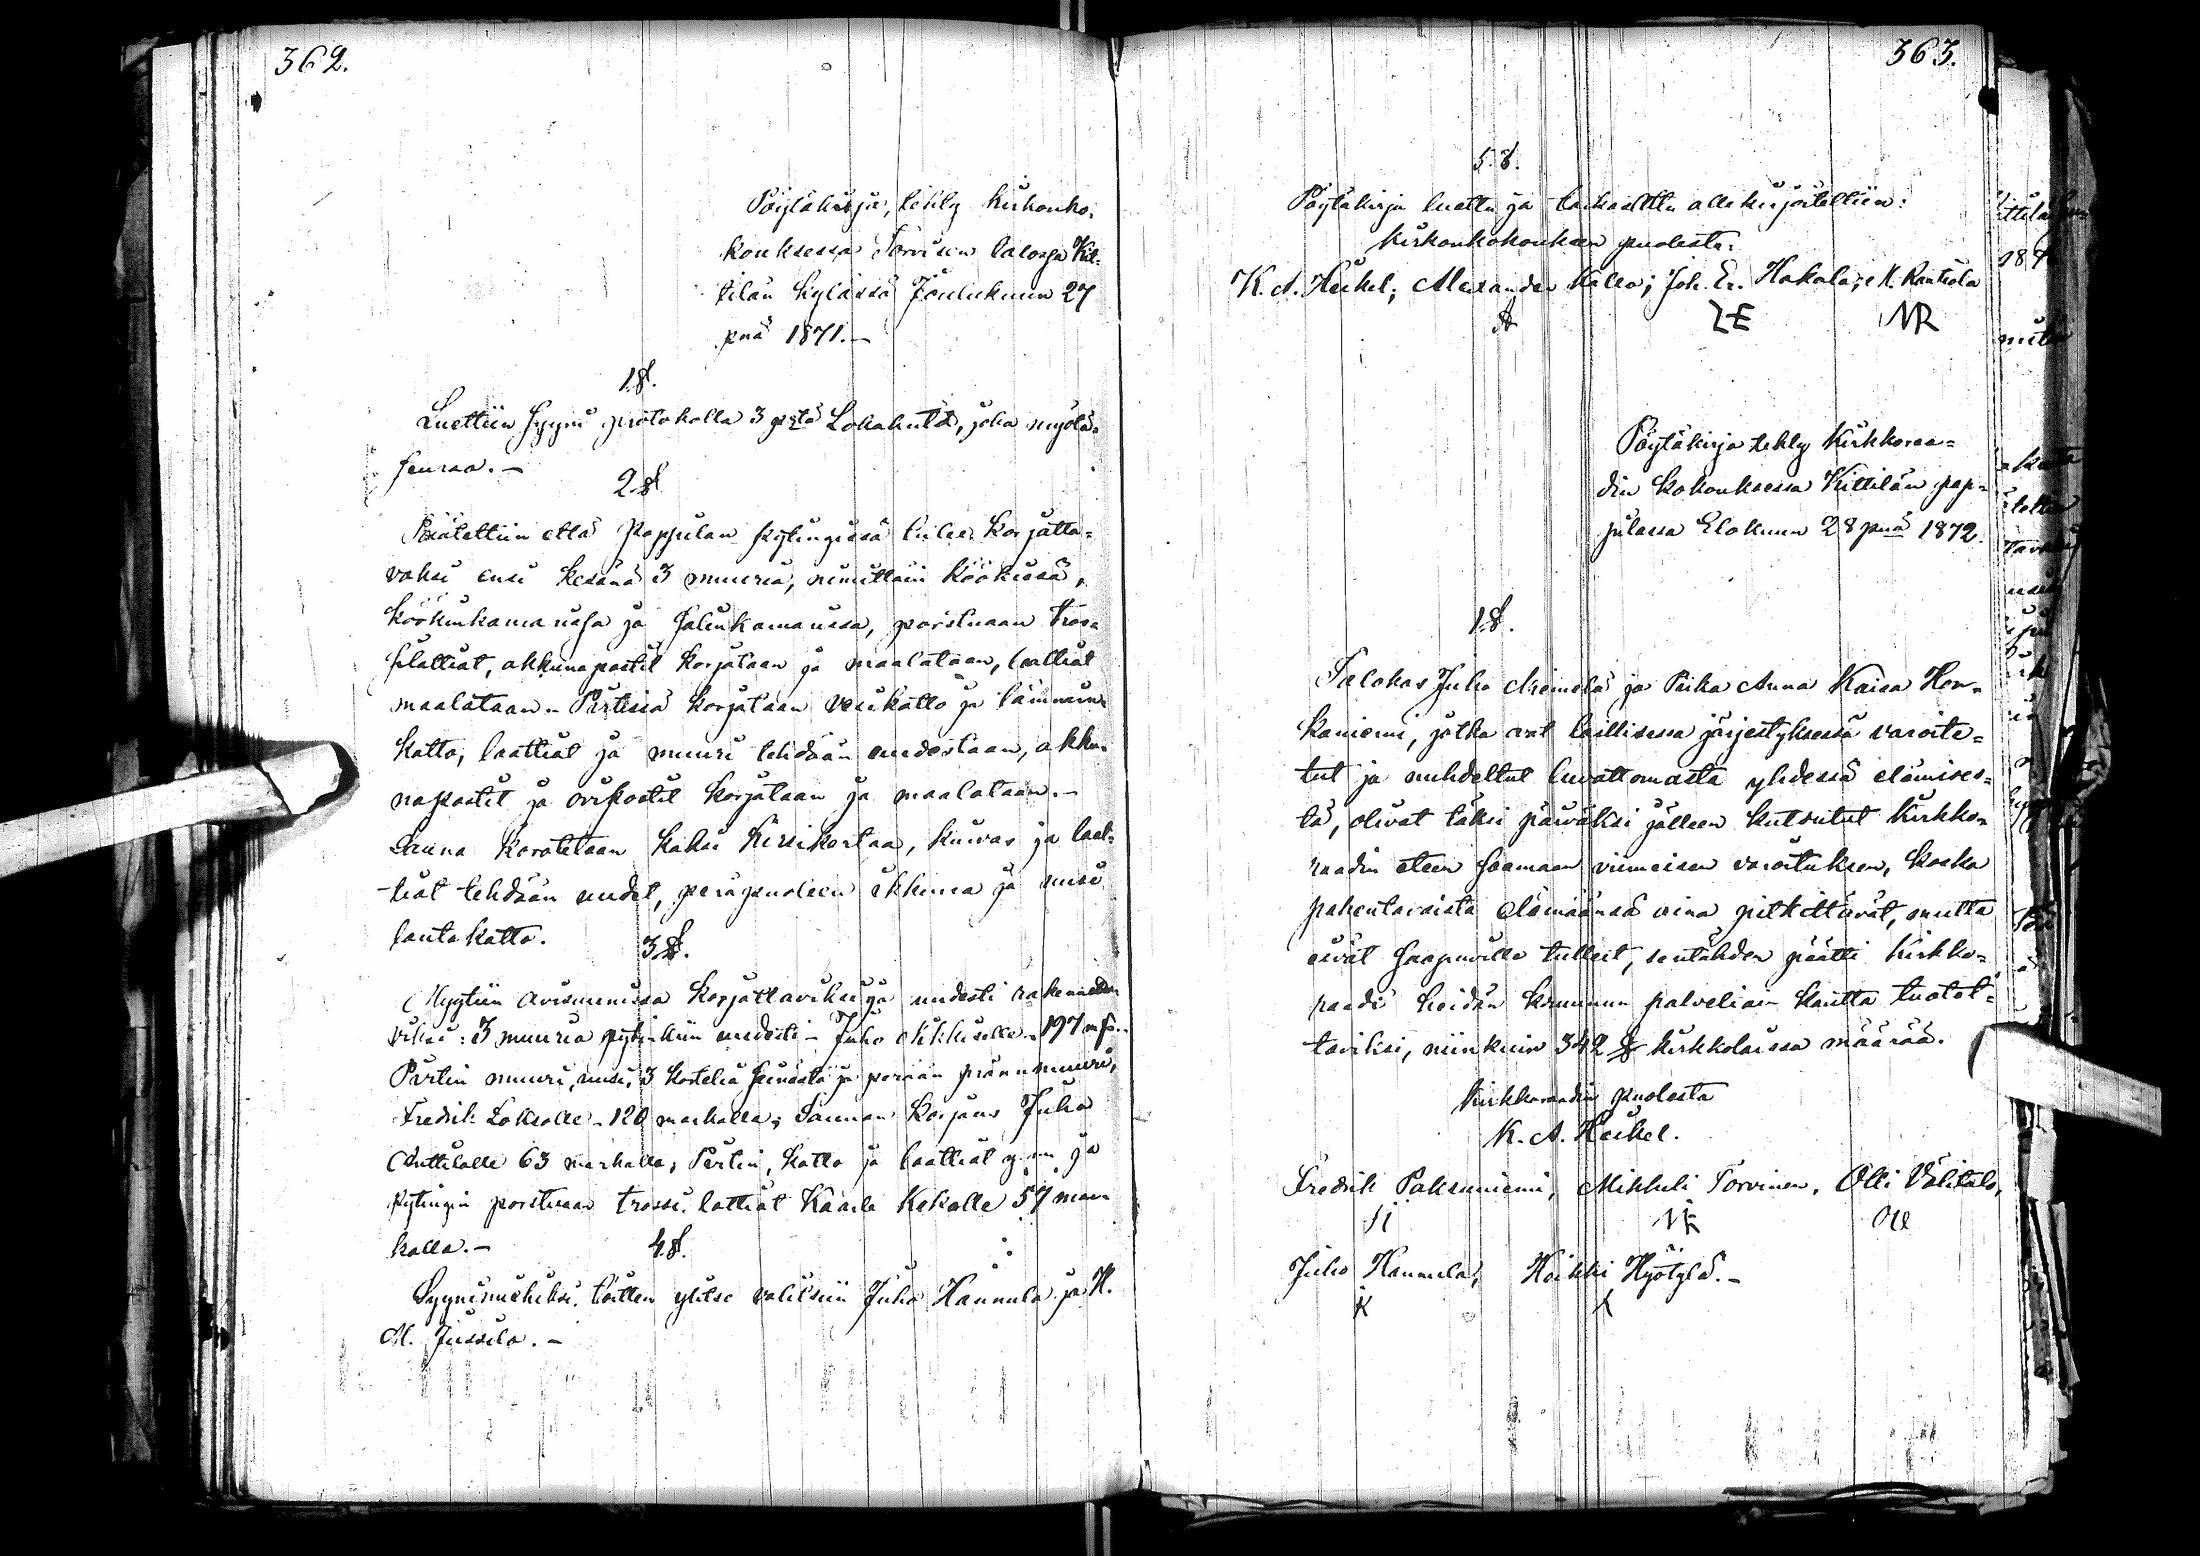 362.
Pöytäkirja, tehty Kirkonko-
kouksessa Torvisen talossa Kit-
tilän kylässä Joulukuun 27
pnä 1871.—
1 §.
Luettiin syyni protokolla 3 pstä Lokakuuta, joka myötä-
seuraa.—
2 §
Päätettiin että Pappilan pytingissä tulee korjatta-
vaksi ensi kesänä 3 muuria, nimittäin köökissä,
köökinkamarissa ja salinkamarissa, porstuaan tros-
silattiat, akkunapoatit korjataan ja maalataan, laattiat
maalataan.- Pirtissä korjataan vesikatto ja lämmin-
katto, laattiat ja muuri tehdään uudestaan, akku-
napoatit ja ovipoatit korjataan ja maalataan.—
Sauna korotetaan kaksi hirsikertaa, kiuvas ja laat-
tiat tehdään uudet, peräpuoleen ikkuna ja uusi
lautakatto.
3 §.
Myytiin korjattaviksi ja uudesti rakennetta-
viksi: 3 muuria pytinkiin uudesti – Juho 197
Pirtin muuri, uusi, 3 korttelia seinästä ja perään
Fredrik Lokselle - 120 markalla; Saunan korjaus Juho
Anttilalle 63 markalla; Pirtin, katto ja laattiat y.m. ja
pytingin porstuan trossi lattiat Kaarle Kekälle 57 mar-
kalla.—
4 §.
Syynimiehiksi töitten ylitse valitsiin Juho Hannula ja H.
M. Jussila.—
363.
5 §.
Pöytäkirja luettu ja tarkastettu allekirjoitettiin:
Kirkonkokouksen puolesta:
K. A. Heikel; Alexander Kallo; Joh. Er. Hakala; M. Rantiola
NR
Pöytäkirja tehty Kirkkoraa-
din kokouksessa Kittilän pap-
pilassa Elokuun 28 pnä 1872.
1 §.
Talokas Juho ja Piika Anna Kaisa Hon-
kaniemi, jotka ovat laillisessa järjestyksessä varoite-
tut ja nuhdeltut luvattomasta yhdessä elämises-
tä, olivat täksi päiväksi jälleen kutsutut kirkko-
raadin eteen saamaan viimeisen varoituksen, koska
pahentavaista elämäänsä aina pitkittävät, mutta
eivät saapuville tulleet, sentähden päätti kirkko-
raadi heidän kruunun palvelian kautta tuotet-
taviksi, niinkuin 342 § kirkkolaissa määrää.
Kirkkoraadin puolesta
K. A. Heikel.
Fredrik Paksuniemi, Mikkeli Torvinen, Olli Välitalo,
Juho Hannula, Heikki Hyötylä.—